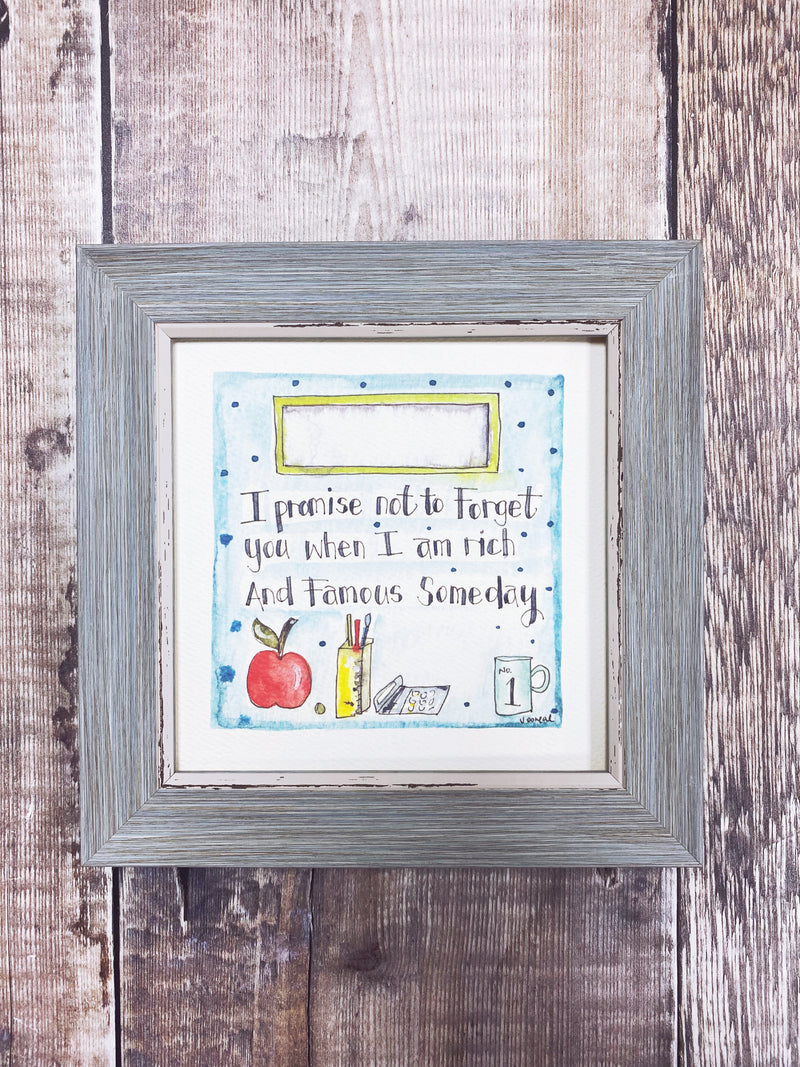 I promise not to Forget
you when I am rich
And Famous Someday
No.
1